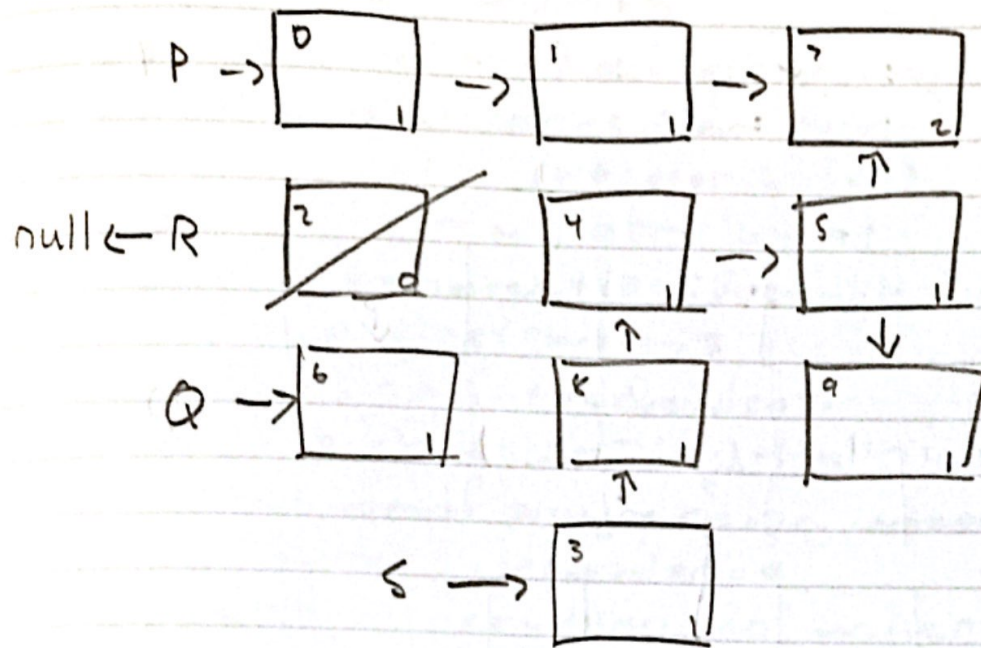 P → 0 1 → 1 1 → 7 2
null ← R 2 0 4 1 → 5 1
Q → 6 1 8 1 9 1
S → 3 1